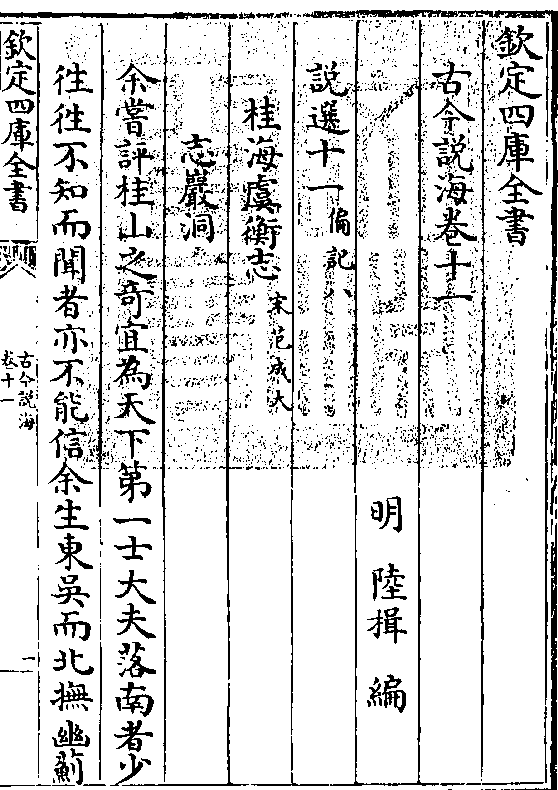 欽定四庫全書
古今説海卷十一
明 陸楫 編
説選十一 偏記八
桂海虞衡志 宋范成大
志巖洞
余嘗評桂山之奇宜為天下第一士大夫落南者少
往往不知而聞者亦不能信余生東吳而北撫幽薊
欽定四庫全書
古今説海
卷十一
一